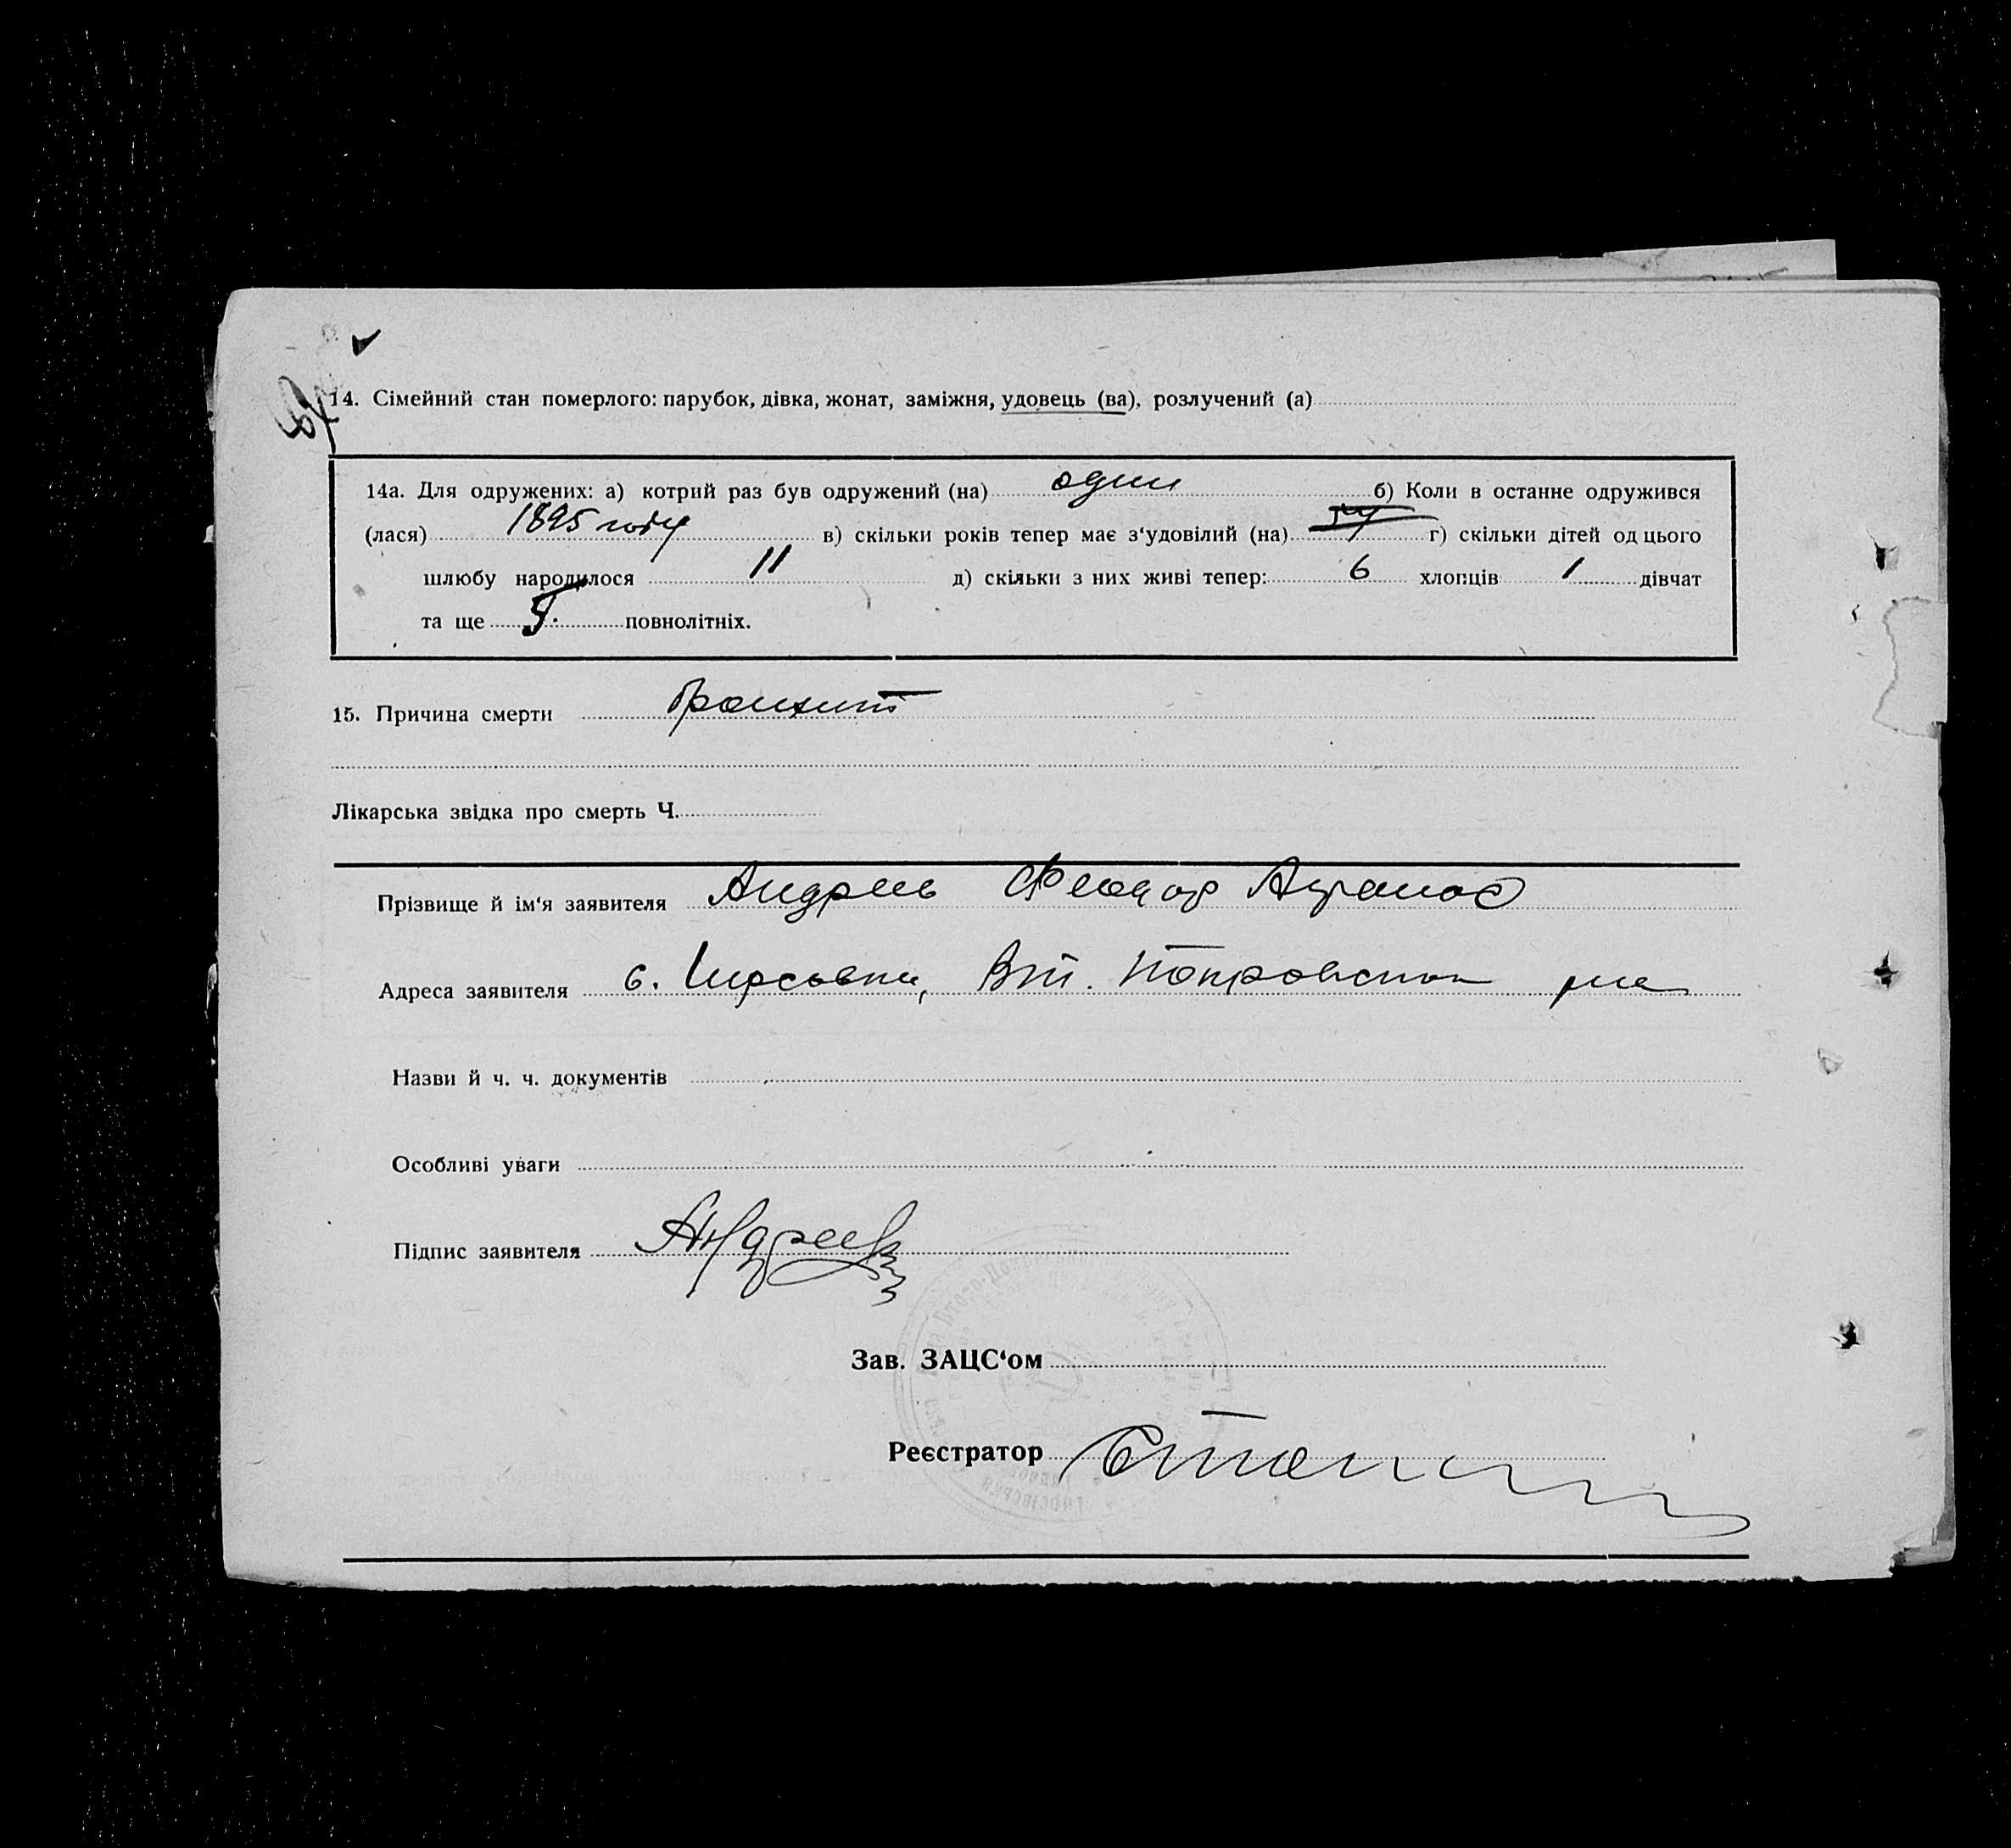 14. Сімейний стан померлого: парубок, дівка, жонат, заміжня, удовець (ва), розлучений (а)
14а. Для одружених: а) котрий раз був одружений (на) один б) Коли в останне одружився
(лася) 1895 году в) скільки років тепер має з'удовілий (на) г) скільки дітей од цього
шлюбу народилося 11 д) скільки з них живі тепер: 6 хлопців 1 дівчат
та ще 5. повнолітніх.
15. Причина смерти бронхит
Лікарська звідка про смерть Ч.
Прізвище й ім'я заявителя Андреев Феодор
Адреса заявителя с.
Назви й ч. ч. документів
Особливі уваги
Підпис заявителя Андреев
Зав. ЗАЦС'ом
Реєстратор